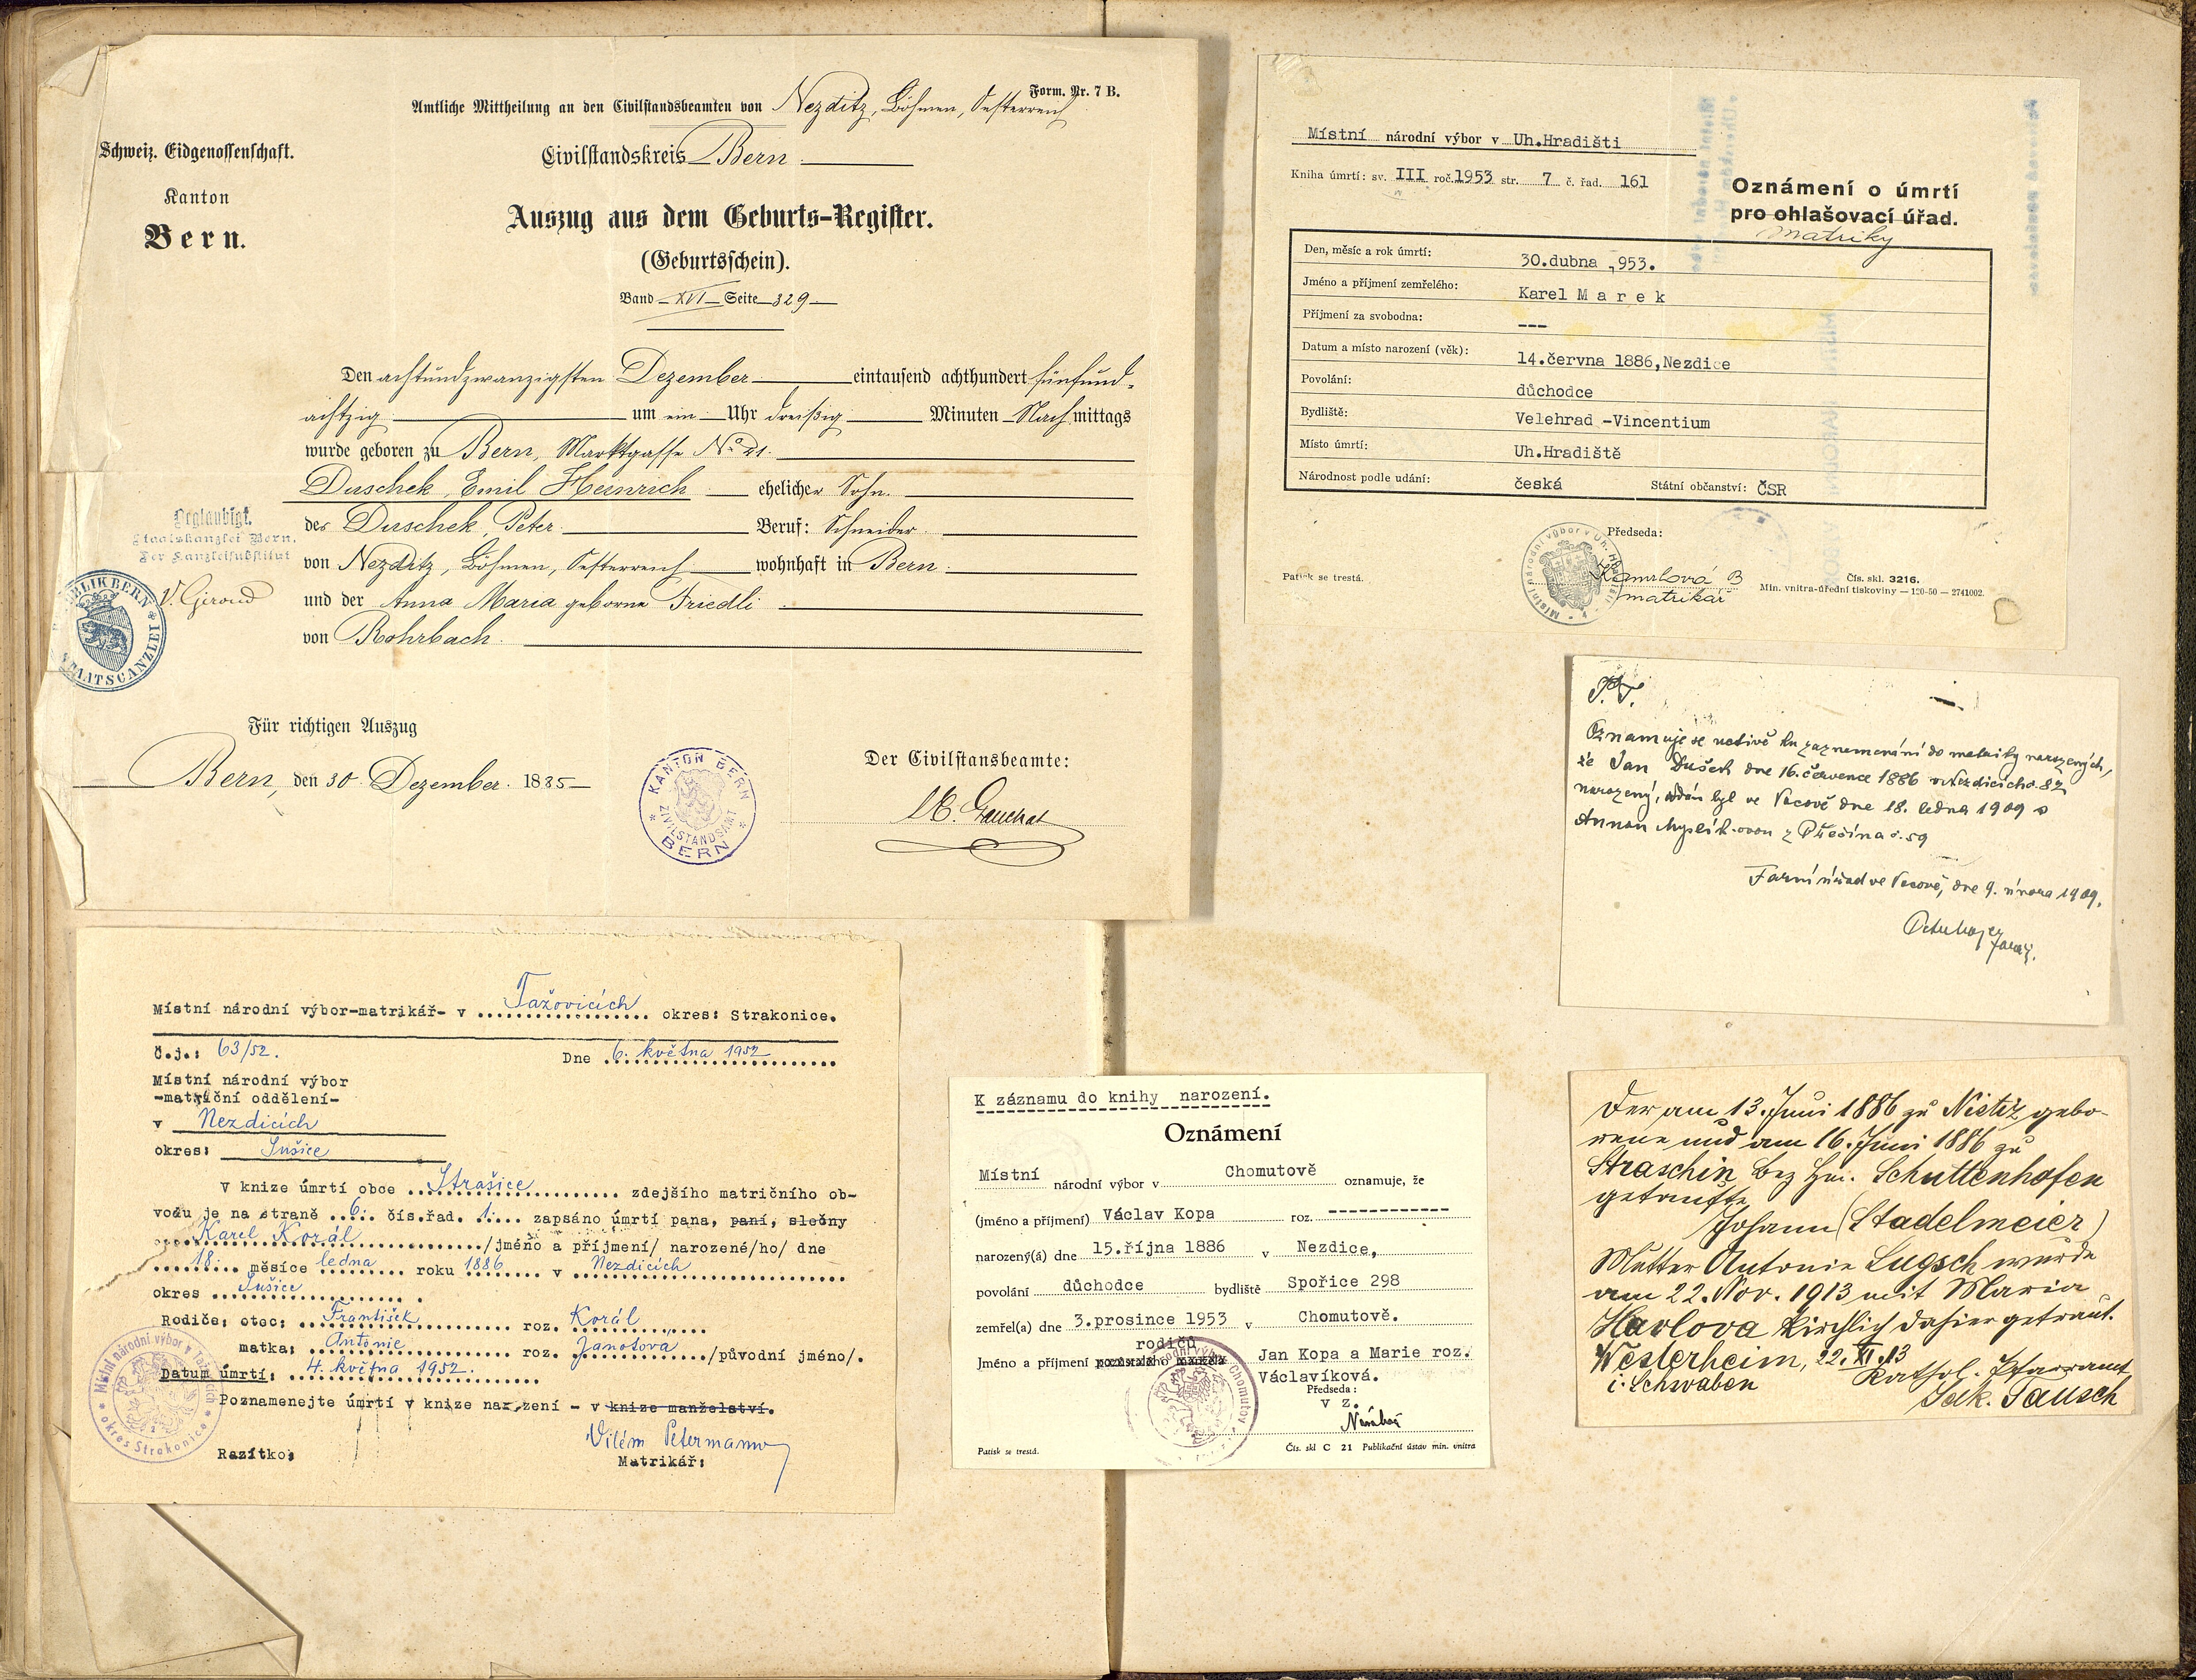 Form. Nr. 7 B.
Amtliche Mittheilung an den Civilstandsbeamten von Nezditz, Böhmen, Oesterreich
Schweiz. Eidgenossenschaft.
Civilstandskreis Bern
Kanton
Bern.
Auszug aus dem Geburts-Register.
(Geburtsschein).
Band XVI Seite 329
Den achtundzwanzigsten Dezember eintausend achthundert fünfund-
achtzig um ein Uhr dreißig Minuten Nachmittags
wurde geboren zu Bern, Marktgasse No 21.
Duschek, Emil Heinrich ehelicher Sohn.
des Duschek, Peter Beruf: Schneider
von Nezditz, Böhmen, Oesterreich wohnhaft in Bern
und der Anna Maria geborne Friedli
von Rohrbach.
Beglaubigt.
Staatskanzlei Bern.
Der Kanzleisubstitut
V. Giroud
REPUBLIK BERN
STAATSCANZLEI
Für richtigen Auszug
Bern, den 30. Dezember 1885
Der Civilstansbeamte:
KANTON BERN
ZIVILSTANDSAMT
BERN
Místní národní výbor-matrikář- v Tažovicích okres: Strakonice.
Č.j.: 63/52.
Dne 6. května 1952
Místní národní výbor
-matriční oddělení-
v Nezdicích
okres: Sušice
V knize úmrtí obce Strašice zdejšího matričního ob-
vodu je na straně 6. čís.řad. 1. zapsáno úmrtí pana, paní, slečny
Karel Korál /jméno a příjmení/ narozené/ho/ dne
18. měsíce ledna roku 1886 v Nezdicích
okres Sušice
Rodiče: otec: František roz. Korál
matka: Antonie roz. Janotová /původní jméno/.
Datum úmrtí: 4. května 1952.
Poznamenejte úmrtí v knize narození - v knize manželství.
Vilém Petermann
Razítko:
Matrikář:
Místní národní výbor v Tažovicích
okres Strakonice
Místní národní výbor v Uh.Hradišti
Kniha úmrtí: sv. III roč. 1953 str. 7 č. řad. 161
Oznámení o úmrtí
pro ohlašovací úřad.
matriky
Den, měsíc a rok úmrtí: 30.dubna ,953.
Jméno a příjmení zemřelého: Karel Marek
Příjmení za svobodna: ---
Datum a místo narození (věk): 14.června 1886,Nezdice
Povolání: důchodce
Bydliště: Velehrad -Vincentium
Místo úmrtí: Uh.Hradiště
Národnost podle udání: česká Státní občanství: ČSR
Předseda:
matrikář
Místní národní výbor v Uh. Hradišti
Patisk se trestá.
Čís. skl. 3216.
Min. vnitra-úřední tiskoviny — 120-50 — 2741002.
P.T.
Oznamuje se uctivě ku zaznamenání do matriky narozených,
že Jan Dušek dne 16. července 1886 v Nezdicích č. 82
narozený, oddán byl ve Vacově dne 18. ledna 1909 s
Annou Myslíkovou z Přečína č. 59
Farní úřad ve Vacově, dne 9. února 1909.
farář.
K záznamu do knihy narození.
Oznámení
Místní národní výbor v Chomutově oznamuje, že
(jméno a příjmení) Václav Kopa roz. ------------
narozený(á) dne 15.října 1886 v Nezdice,
povolání důchodce bydliště Spořice 298
zemřel(a) dne 3.prosince 1953 v Chomutově.
rodičů
Jméno a příjmení pozůstalého manžela Jan Kopa a Marie roz.
Václavíková.
Předseda:
v z.
Patisk se trestá.
Čís. skl C 21 Publikační ústav min. vnitra
Der am 13. Juni 1886 zu Nestiz gebo-
rene und am 16. Juni 1886 zu
Straschin Bez Hm. Schuttenhofen
getaufte
Johann (Stadelmeier)
Mutter Antonie Lugsch wurde
am 22. Nov. 1913 mit Maria
Havlova kirchlich dahier getraut.
Westerheim, 22. XI. 13
i. Schwaben
Kathol. Pfarramt
Jak. Tausch